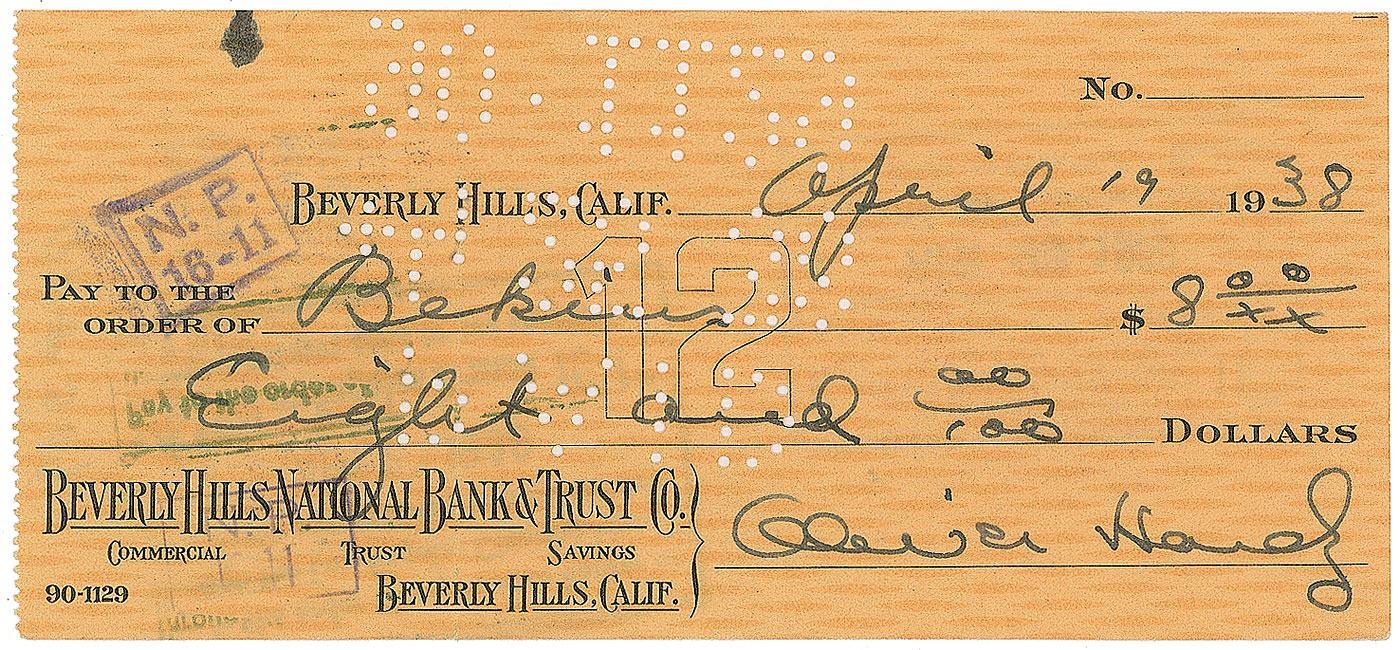 No.
N. P.
16-11
BEVERLY HILLS, CALIF. April 19 1938
PAY TO THE
ORDER OF Bekins $ 8 00/xx
12
Pay to the order of
Eight and 00/100 DOLLARS
BEVERLY HILLS NATIONAL BANK & TRUST CO.
COMMERCIAL TRUST SAVINGS
90-1129 BEVERLY HILLS, CALIF.
Oliver Hardy